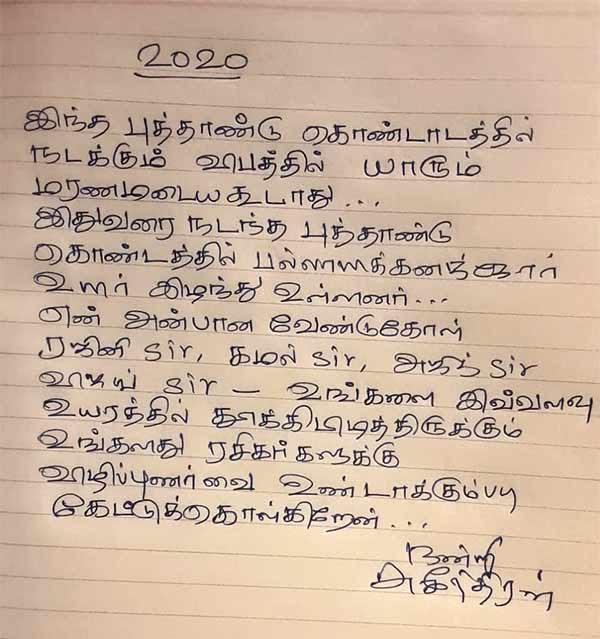 2020
இந்த புத்தாண்டு கொண்டாடத்தில்
நடக்கும் விபத்தில் யாரும்
மரணமடைய கூடாது...
இதுவரை நடந்த புத்தாண்டு
கொண்டத்தில் பல்லாயிக்கனத்தூர்
உயர் இழந்து உள்ளனர்...
என் அன்பான வேண்டுகோள்
ரஜினி sir, கமல் sir, அஜித் sir
விஜய் sir – உங்களை இவ்வளவு
உயரத்தில் தூக்கிபிடித்திருக்கும்
உங்களது ரசிகர்களுக்கு
விழிப்புனர்வை உண்டாக்கும்படி
கேட்டுக்கொல்கிறேன்...
நன்றி